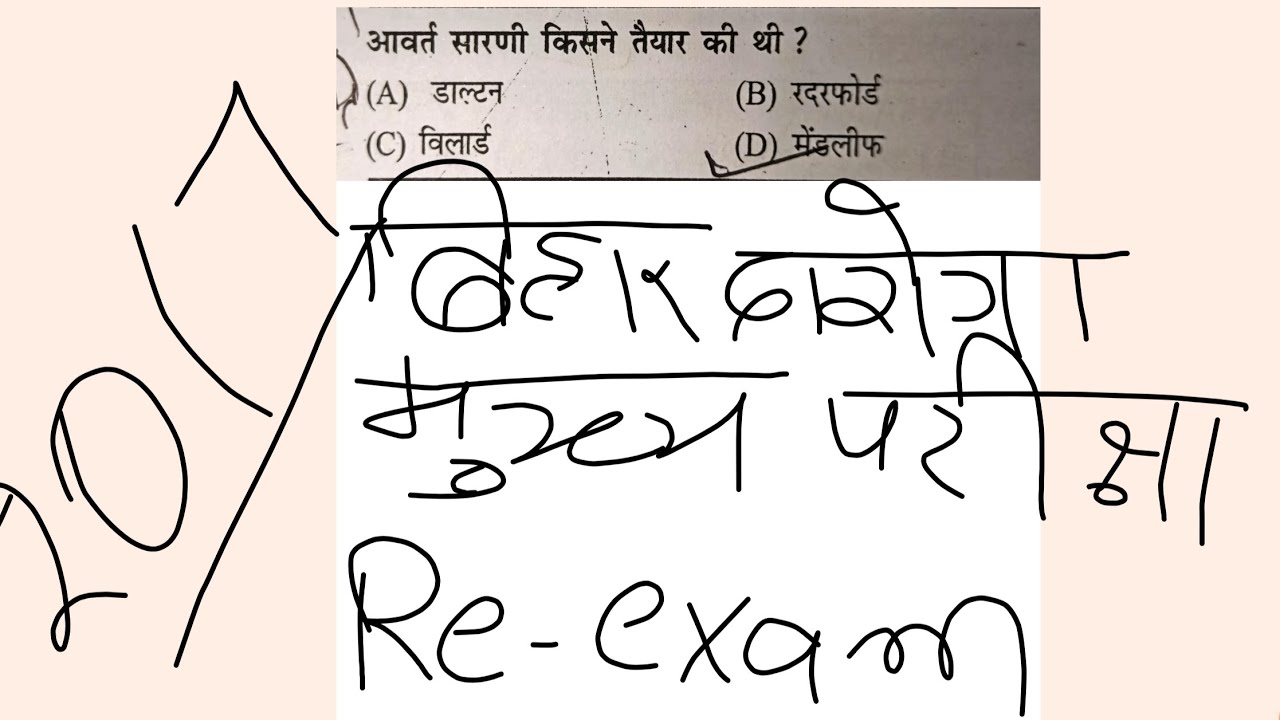 आवर्त सारणी किसने तैयार की थी ?
(A) डाल्टन (B) रदरफोर्ड
(C) विलार्ड (D) मेंडलीफ
बिहार दरोगा
मुख्य परीक्षा
Re-exam